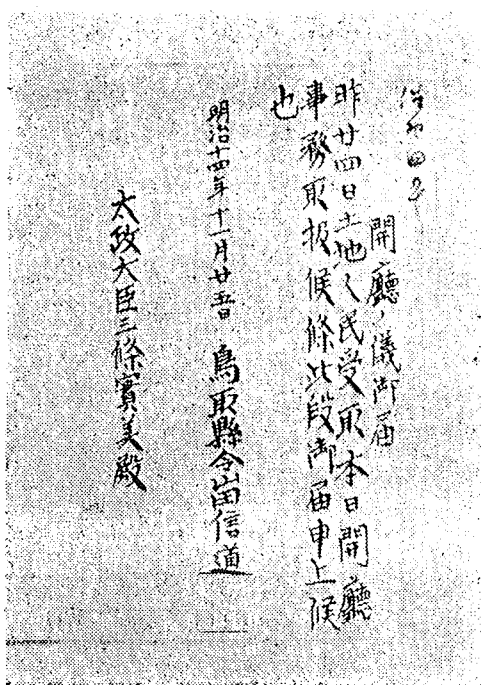 開廳ノ儀御届
昨廿四日土地人民受取本日開廳
事務取扱候條此段御届申上候
也
明治十四年十一月廿五日 鳥取縣令山田信道
太政大臣三條實美殿